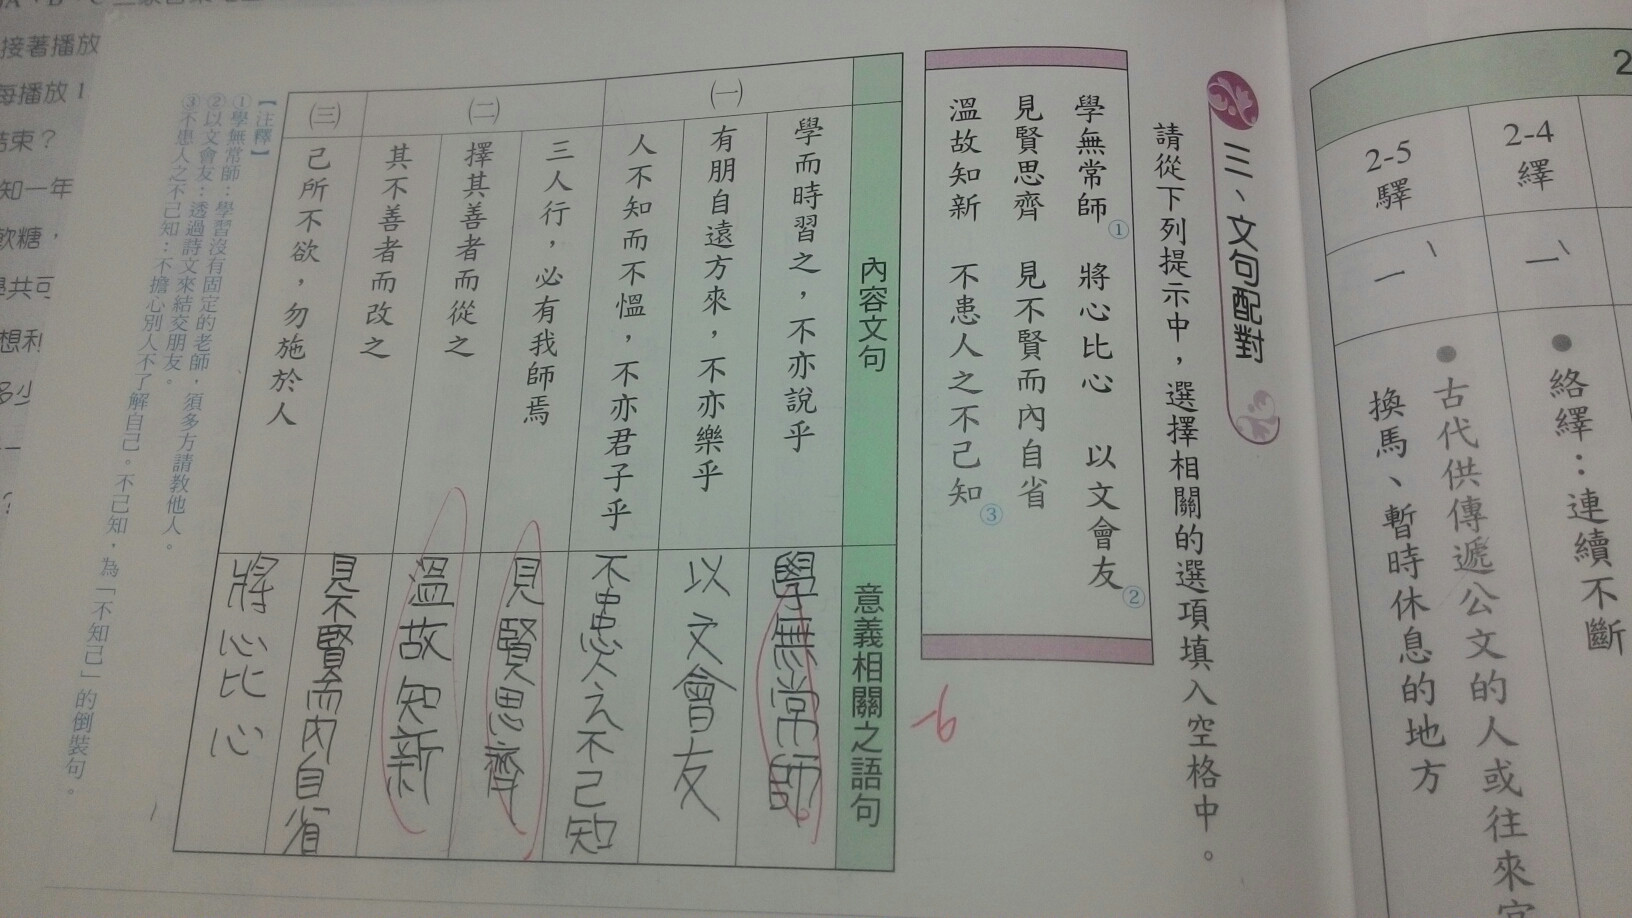 2
2-4
繹
ㄧˋ
絡繹：連續不斷
2-5
驛
ㄧˋ
古代供傳遞公文的人或往來官
換馬、暫時休息的地方
三、文句配對
請從下列提示中，選擇相關的選項填入空格中。
學無常師① 將心比心 以文會友②
見賢思齊 見不賢而內自省
溫故知新 不患人之不己知③
-6
內容文句
意義相關之語句
㈠
學而時習之，不亦說乎
學無常師
有朋自遠方來，不亦樂乎
以文會友
人不知而不慍，不亦君子乎
不患人之不己知
㈡
三人行，必有我師焉
見賢思齊
擇其善者而從之
溫故知新
其不善者而改之
見不賢而內自省
㈢
己所不欲，勿施於人
將心比心
【注釋】
①學無常師：學習沒有固定的老師，須多方請教他人。
②以文會友：透過詩文來結交朋友。
③不患人之不己知：不擔心別人不了解自己。不己知，為「不知己」的倒裝句。
接著播放
每播放1
結束？
知一年
軟糖，
共可
想利
多少